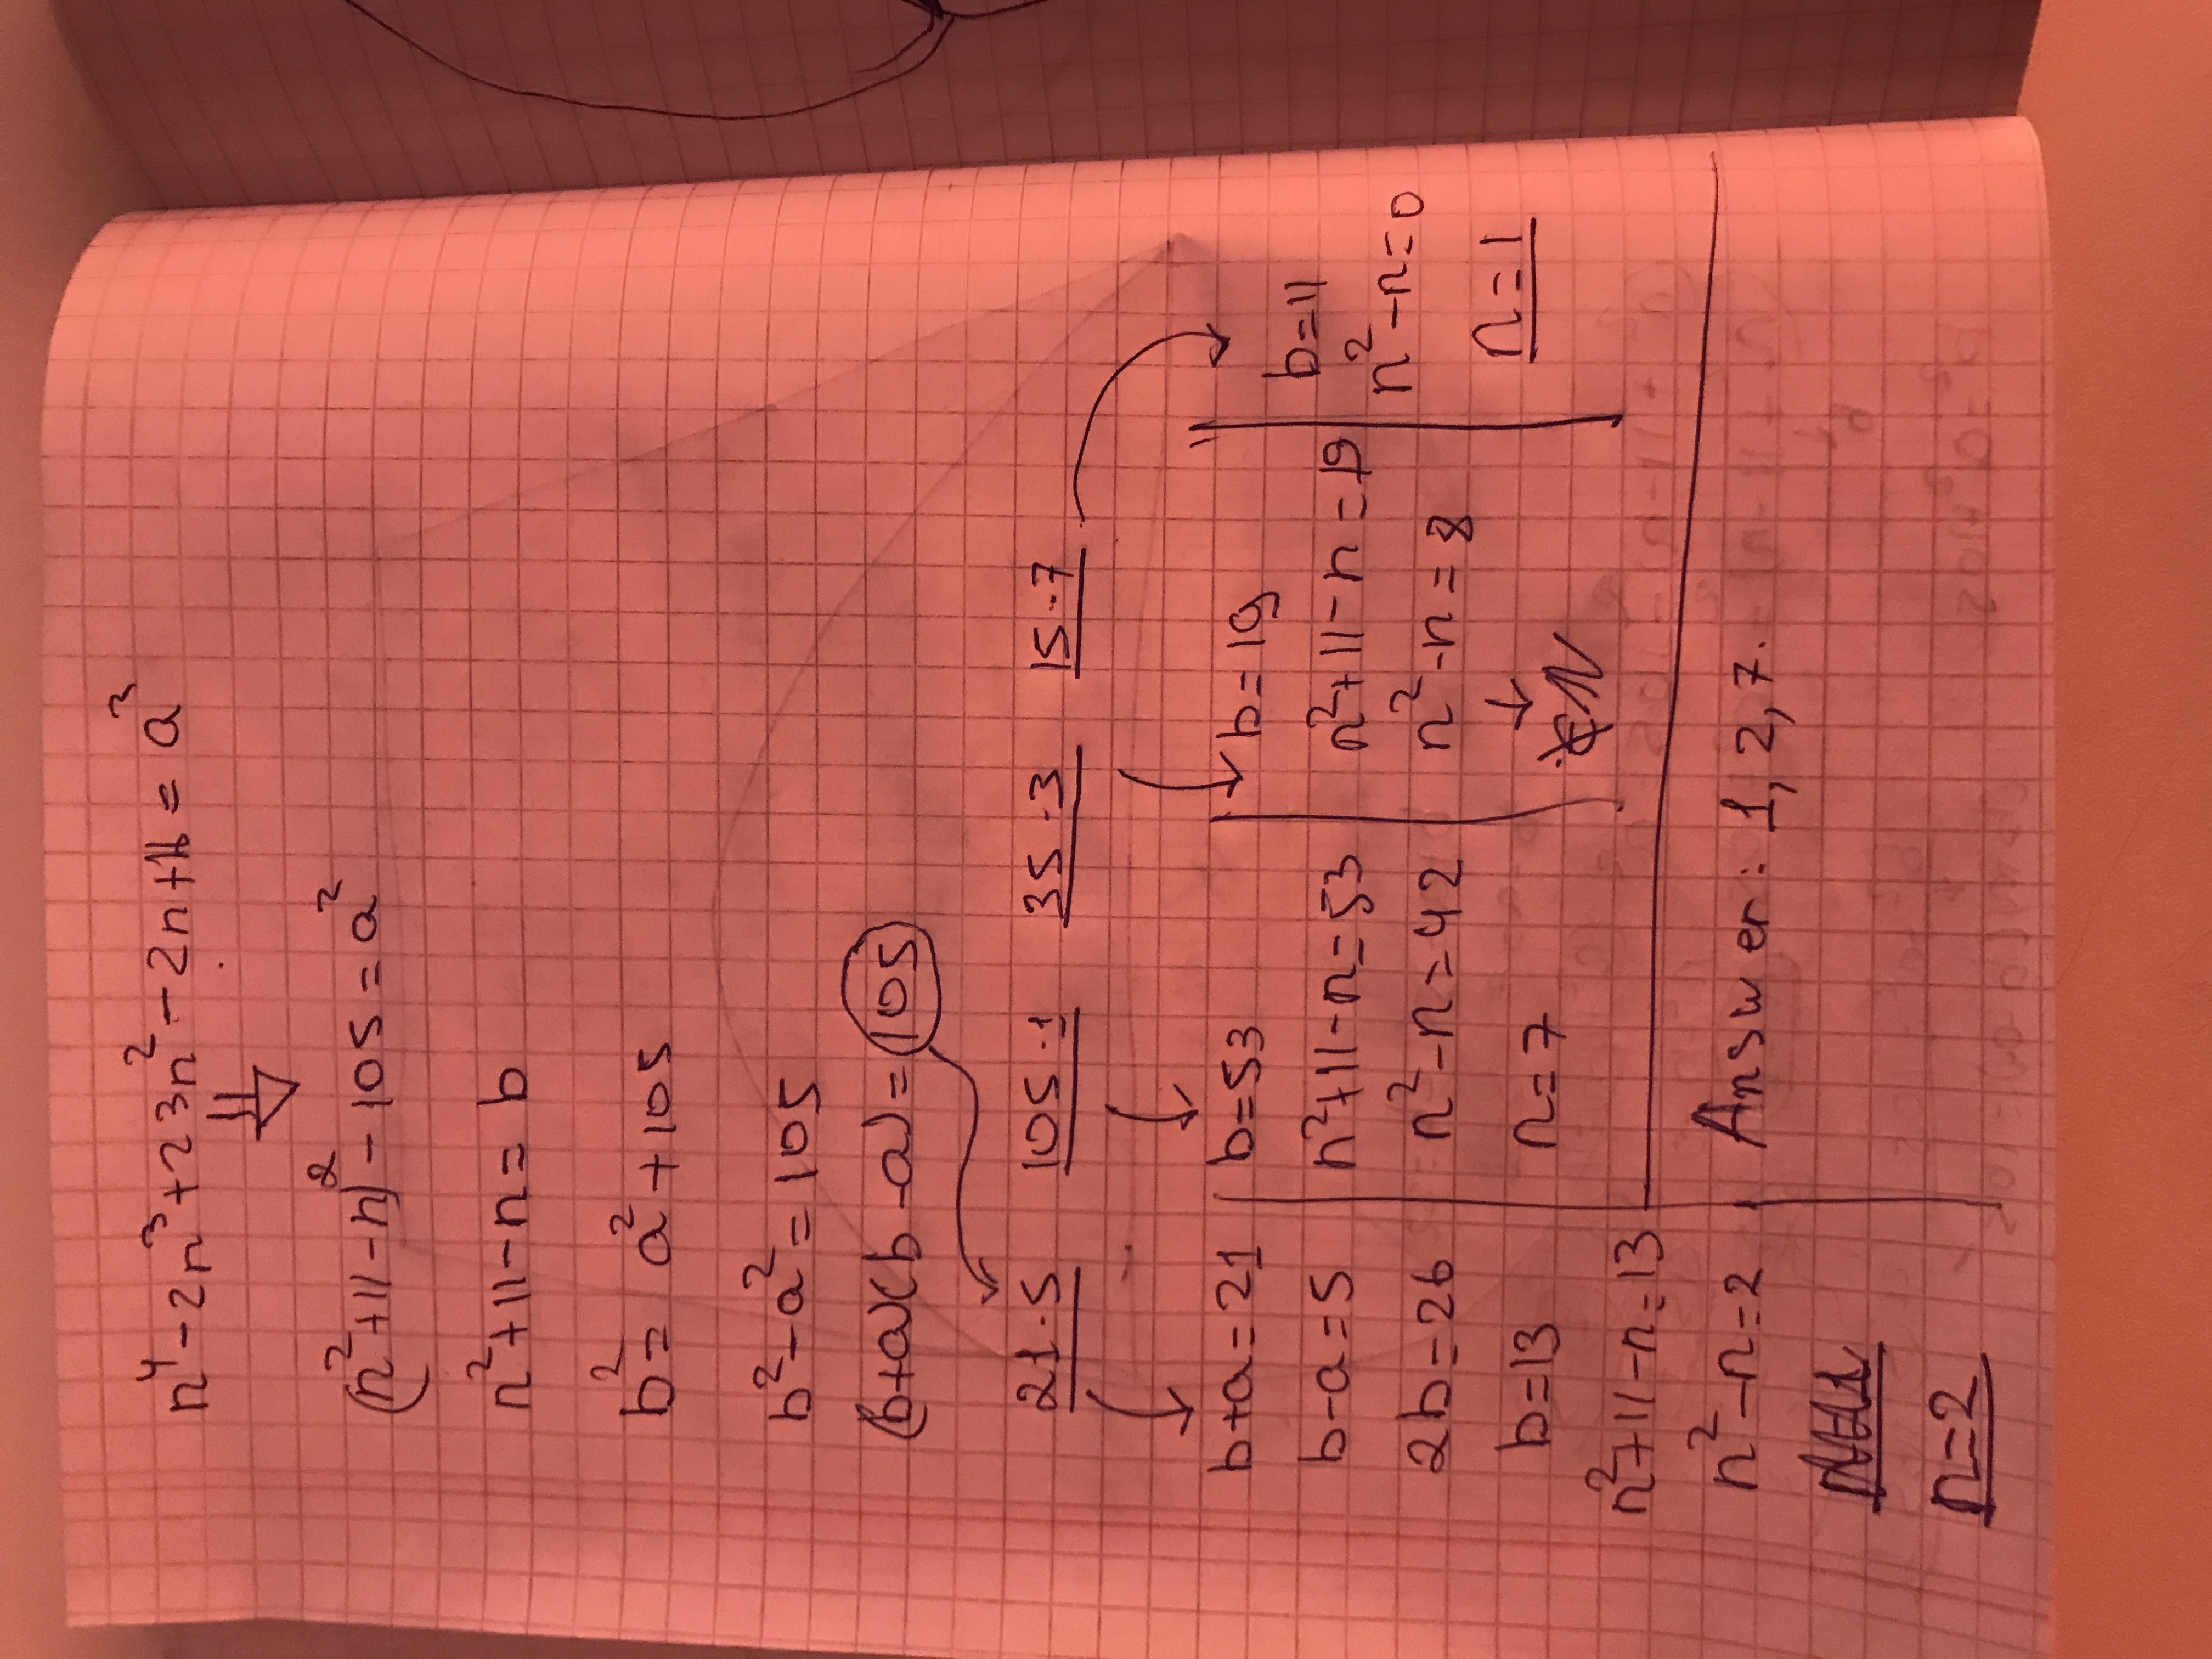 n⁴-2n³+23n²-2n+16 = a³
(n²+11-n)²-105=a²
n²+11-n=b
b²= a²+105
b²-a²=105
(b+a)(b-a)=105
21·5 105·1 35·3 15·7
b+a=21
b-a=5
2b=26
b=13
n²+11-n=13
n²-n=2
n=2
b=53
n²+11-n=53
n²-n=42
n=7
b=19
n²+11-n=19
n²-n=8
↓
∉N
b=11
n²-n=0
n=1
Answer: 1, 2, 7.